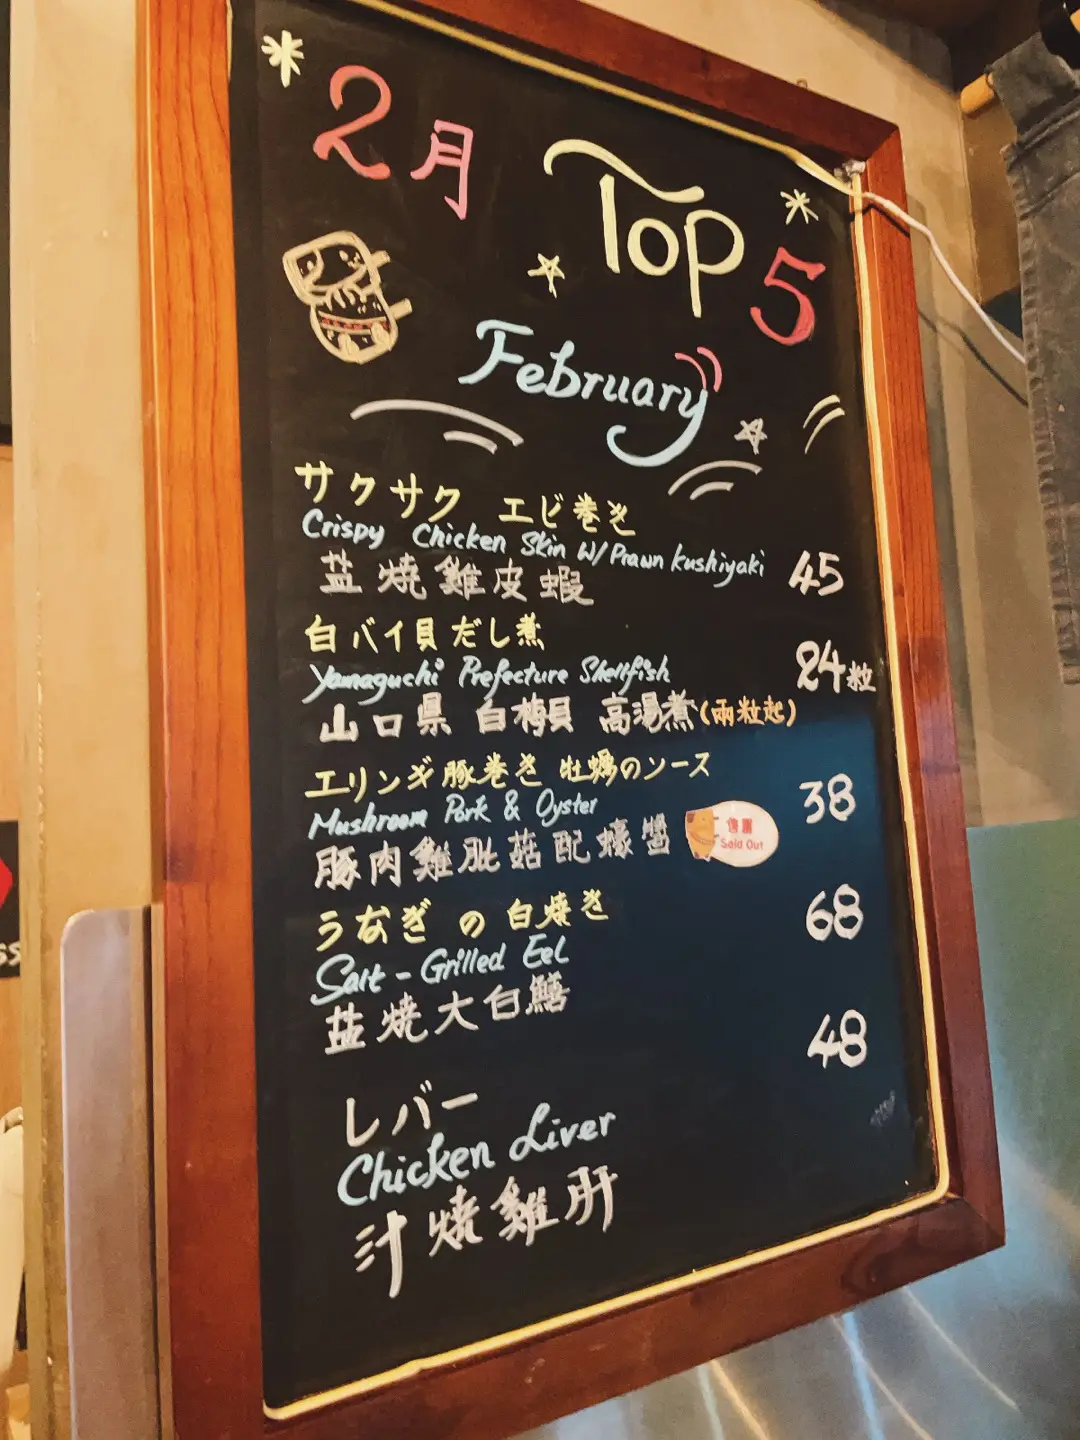 2月
Top 5
February
サクサク エビ巻き
Crispy Chicken Skin W/Prawn Kushiyaki
盐燒雞皮蝦 45
白バイ貝だし煮
Yamaguchi Prefecture Shellfish 24粒
山口県 白梅貝 高湯煮(兩粒起)
エリンギ豚巻き 牡蠣のソース
Mushroom Pork & Oyster 38
豚肉雞肶菇配蠔醬
售罄
Sold Out
うなぎ の 白焼き 68
Salt-Grilled Eel
盐燒大白鱔
48
レバー
Chicken Liver
汁燒雞肝